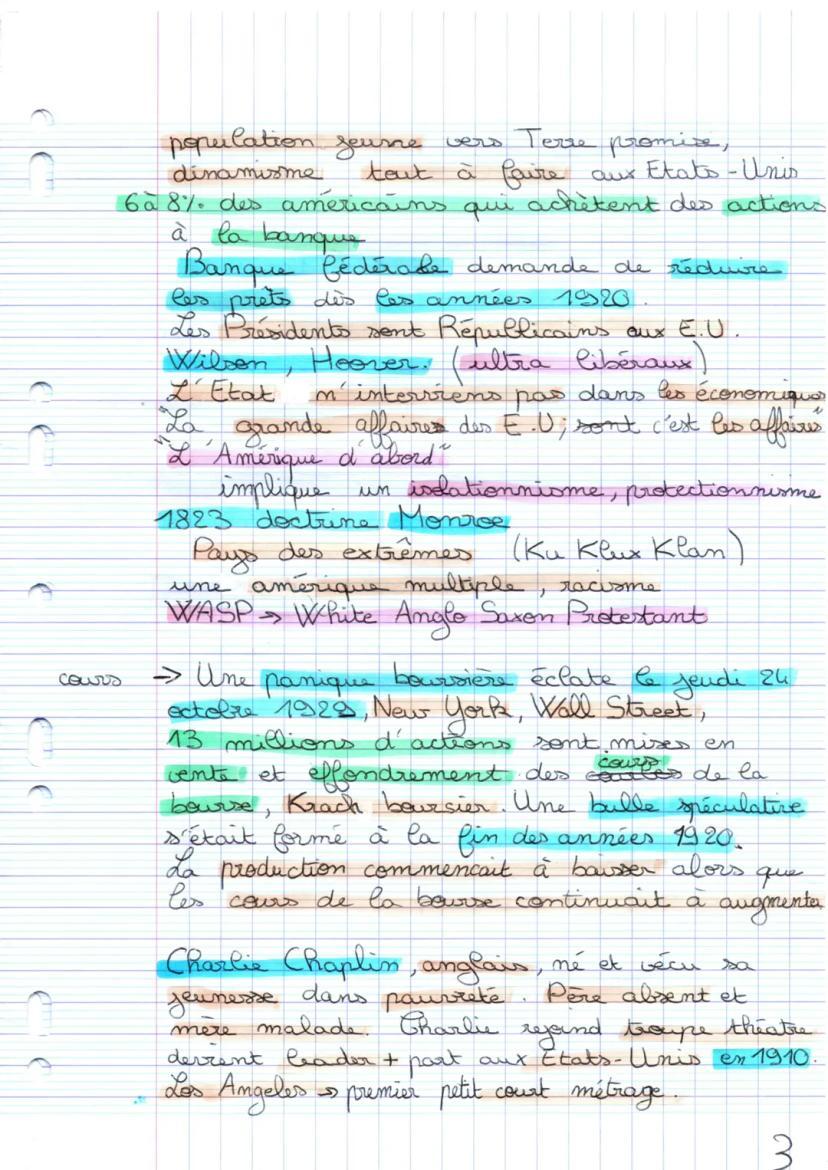 population jeune vers Terre promise,
dinamisme tout à faire aux Etats-Unis
6 à 8% des américains qui achètent des actions
à la banque
Banque fédérale demande de réduire
les prêts dès les années 1920.
Les Présidents sont Républicains aux E.U.
Wilson, Hoover. (ultra libéraux)
L'Etat n'interviens pas dans les économiques
"La grande affaires des E.U; sont c'est les affaires"
"L'Amérique d'abord"
implique un isolationnisme, protectionnisme
1823 doctrine Monroe
Pays des extrêmes (Ku Klux Klan)
une amérique multiple, racisme
WASP → White Anglo Saxon Protestant
cours → Une panique boursière éclate le jeudi 24
octobre 1929, New York, Wall Street,
13 millions d'actions sont mises en
vente et effondrement des cours de la
bourse, Krach boursier. Une bulle spéculative
s'était formé à la fin des années 1920.
La production commencait à baisser alors que
les cours de la bourse continuait à augmenter
Charlie Chaplin, anglais, né et vécu sa
jeunesse dans pauvreté. Père absent et
mère malade. Charlie rejoind troupe théatre
devient leader + part aux Etats-Unis en 1910.
Los Angeles → premier petit court métrage.
3